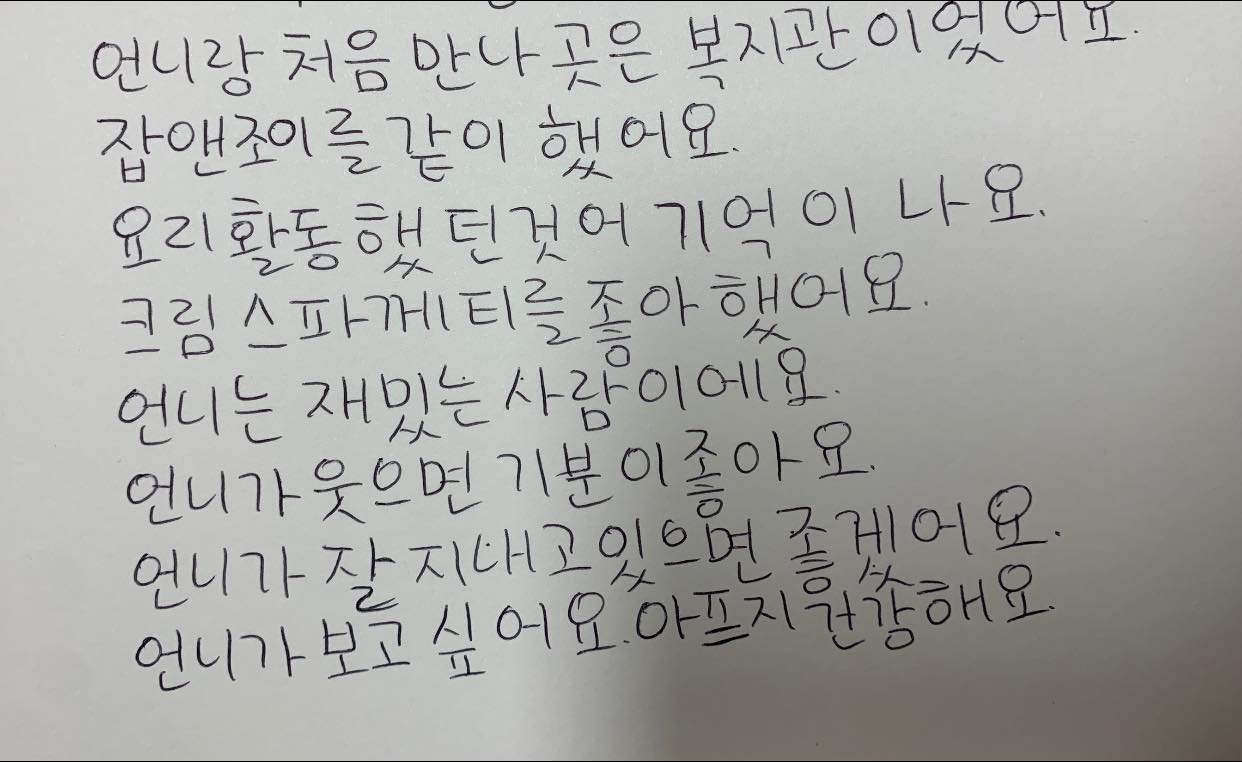 언니랑 처음 만나 곳은 복지관이었어요.
잡앤조이를 같이 했어요.
요리활동했던것어 기억이 나요.
크림 스파게티를 좋아했어요.
언니는 재밌는 사람이에요.
언니가 웃으면 기분이좋아요.
언니가 잘 지내고있으면 좋겠어요.
언니가 보고 싶어요.아프지 건강해요